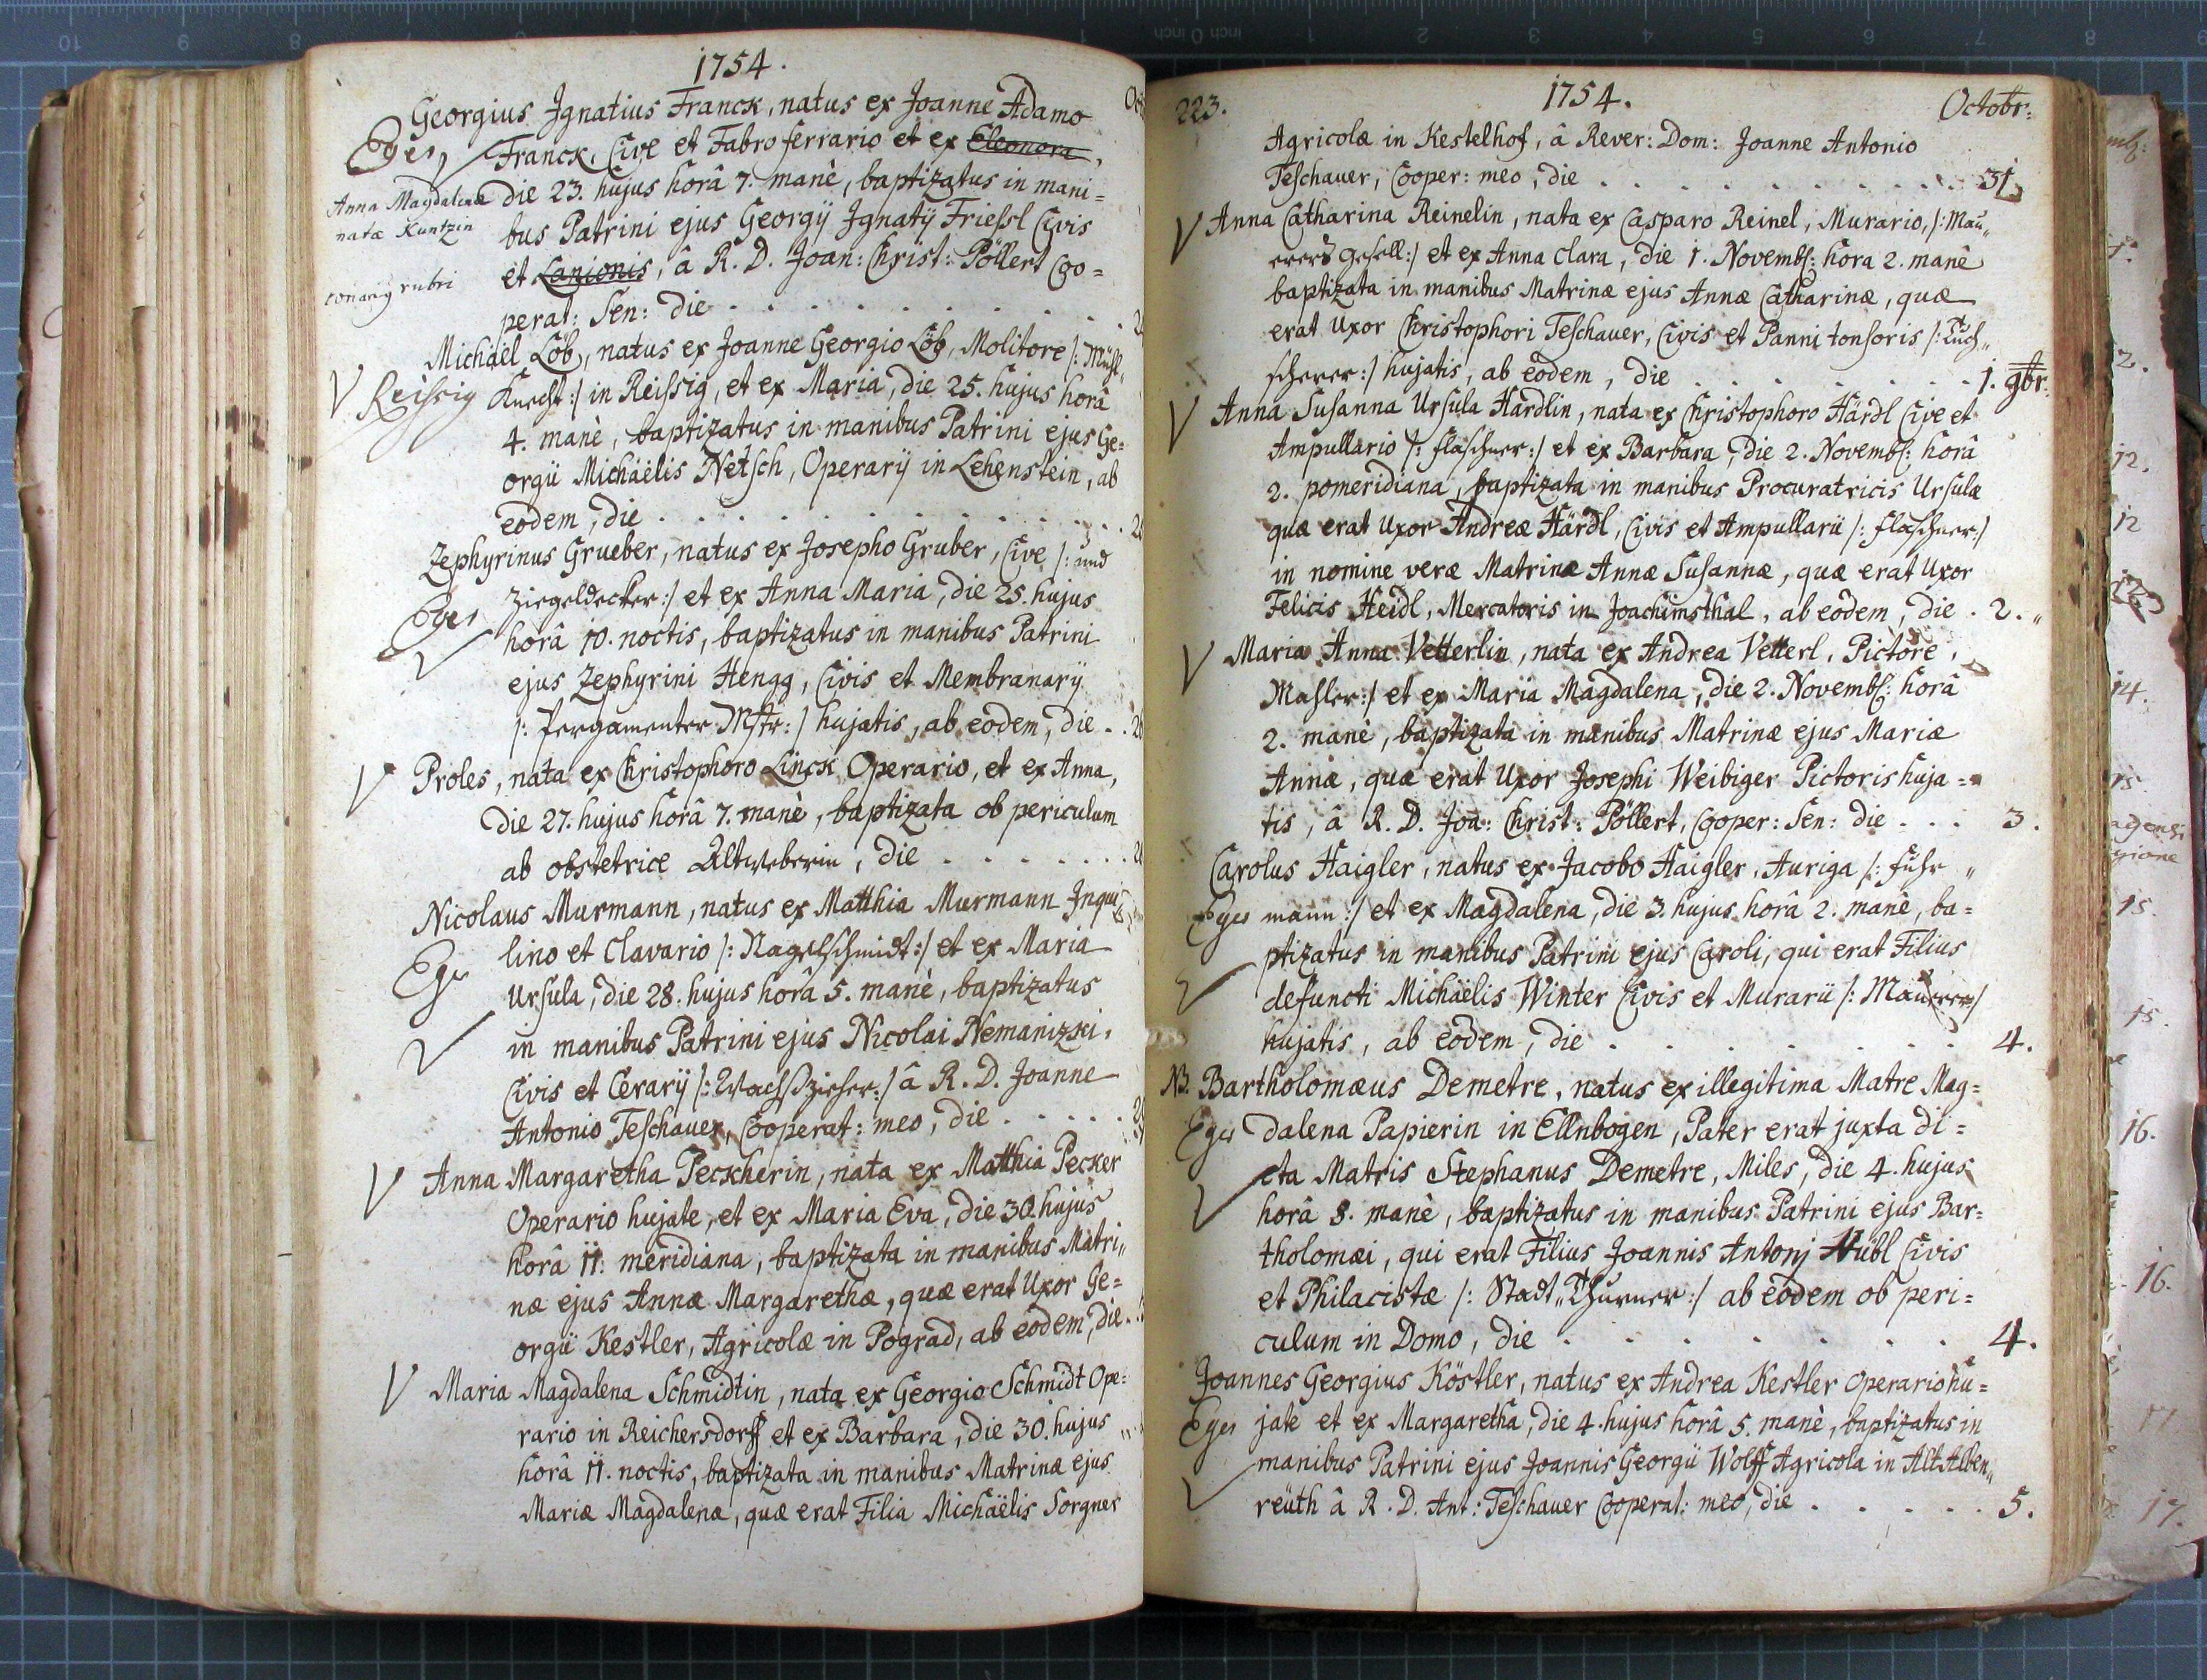 1754.
Georgius Ignatius Franck, natus ex Joanne Adamo
Eger Franck, Cive et Fabro ferrario et ex Eleonora,
Anna Magdalena
natæ Kuntzin
die 23. hujus horâ 7. manè, baptizatus in mani=
bus Patrini ejus Georgÿ Ignatÿ Friessl Civis
et Lanionis, â R. D. Joan: Christ: Pöllert Coo=
rubri
perat: Sen: die
Michaël Löb, natus ex Joanne Georgio Löb, Molitore /: Mühl„
Reissig Knecht :/ in Reissig, et ex Maria, die 25. hujus horâ
4. manè, baptizatus in manibus Patrini ejus Ge=
orgii Michaëlis Netsch, Operarÿ in Lehenstein, ab
eodem, die
Zephyrinus Grueber, natus ex Josepho Gruber, Cive /: und
Ziegeldecker :/ et ex Anna Maria, die 25. hujus
Eger
horâ 10. noctis, baptizatus in manibus Patrini
ejus Zephyrini Hengg, Civis et Membranarÿ
/: Pergamenter Mstr: / hujatis, ab eodem, die
Proles, nata ex Christophoro Linck Operario, et ex Anna,
die 27. hujus horâ 7. manè, baptizata ob periculum
ab obstetrice Altweberin, die
Nicolaus Murmann, natus ex Matthia Murmann Inqui
lino et Clavario /: Nagelschmidt :/ et ex Maria
Eger
Ursula, die 28. hujus horâ 5. manè, baptizatus
in manibus Patrini ejus Nicolai Nemanizki,
Civis et Cerarÿ /: Wachszieher :/ â R. D. Joanne
Antonio Teschauer, Cooperat: meo, die
Anna Margaretha Peckherin, nata ex Matthia Pecker
Operario hujate, et ex Maria Eva, die 30. hujus
horâ 11. meridiana, baptizata in manibus Matri„
næ ejus Annæ Margarethæ, quæ erat Uxor Ge=
orgii Kestler, Agricolæ in Pograd, ab eodem, die
Maria Magdalena Schmidtin, nata ex Georgio Schmidt Ope=
rario in Reichersdorff et ex Barbara, die 30. hujus
horâ 11. noctis, baptizata in manibus Matrinæ ejus
Mariæ Magdalenæ, quæ erat Filia Michaëlis Sorgner
223. 1754. Octobr:
Agricolæ in Kestelhof, â Rever: Dom: Joanne Antonio
Teschauer, Cooper: meo, die 31.
Anna Catharina Reinelin, nata ex Casparo Reinel, Murario, /: Mau„
erers gesell :/ et ex Anna Clara, die 1. Novemb: hora 2. manè
baptizata in manibus Matrinæ ejus Annæ Catharinæ, quæ
erat Uxor Christophori Teschauer, Civis et Panni tonsoris /: Tuch„
scherer :/ hujatis, ab eodem, die 1. 9br.
Anna Susanna Ursula Härdlin, nata ex Christophoro Härdl Cive et
Ampullario /: flaschner :/ et ex Barbara, die 2. Novemb: horâ
2. pomeridiana, baptizata in manibus Procuratricis Ursulæ
quæ erat Uxor Andreæ Härdl, Civis et Ampullarii /: flaschner :/
in nomine veræ Matrinæ Annæ Susannæ, quæ erat Uxor
Felicis Heidl, Mercatoris in Joachimsthal, ab eodem, die 2. „
Maria Anna Vetterlin, nata ex Andrea Vetterl, Pictore,
Mahler :/ et ex Maria Magdalena, die 2. Novemb: horâ
2. manè, baptizata in manibus Matrinæ ejus Mariæ
Annæ, quæ erat Uxor Josephi Weibiger Pictoris huja=
tis, â R. D. Joa: Christ: Pöllert, Cooper: Sen: die 3.
Carolus Haigler, natus ex Jacobo Haigler, Auriga /: Fuhr„
Eger mann :/ et ex Magdalena, die 3. hujus horâ 2. manè, ba=
ptizatus in manibus Patrini ejus Caroli, qui erat Filius
defuncti Michaëlis Winter Civis et Murarii /: Maurer :/
hujatis, ab eodem, die 4.
NB. Bartholomæus Demetre, natus ex illegitima Matre Mag=
Eger dalena Papierin in Ellnbogen, Pater erat juxta di=
cta Matris Stephanus Demetre, Miles, die 4. hujus
horâ 8. manè, baptizatus in manibus Patrini ejus Bar=
tholomæi, qui erat Filius Joannis Antonj Hübl Civis
et Philacistæ /: Stadt„Thurner :/ ab eodem ob peri=
culum in Domo, die 4.
Joannes Georgius Köstler, natus ex Andrea Kestler Operario hu=
Eger jate et ex Margaretha, die 4. hujus horâ 5. manè, baptizatus in
manibus Patrini ejus Joannis Georgii Wolff Agricola in Alt Alben„
reüth â R. D. Ant: Teschauer Cooperat: meo, die 5.